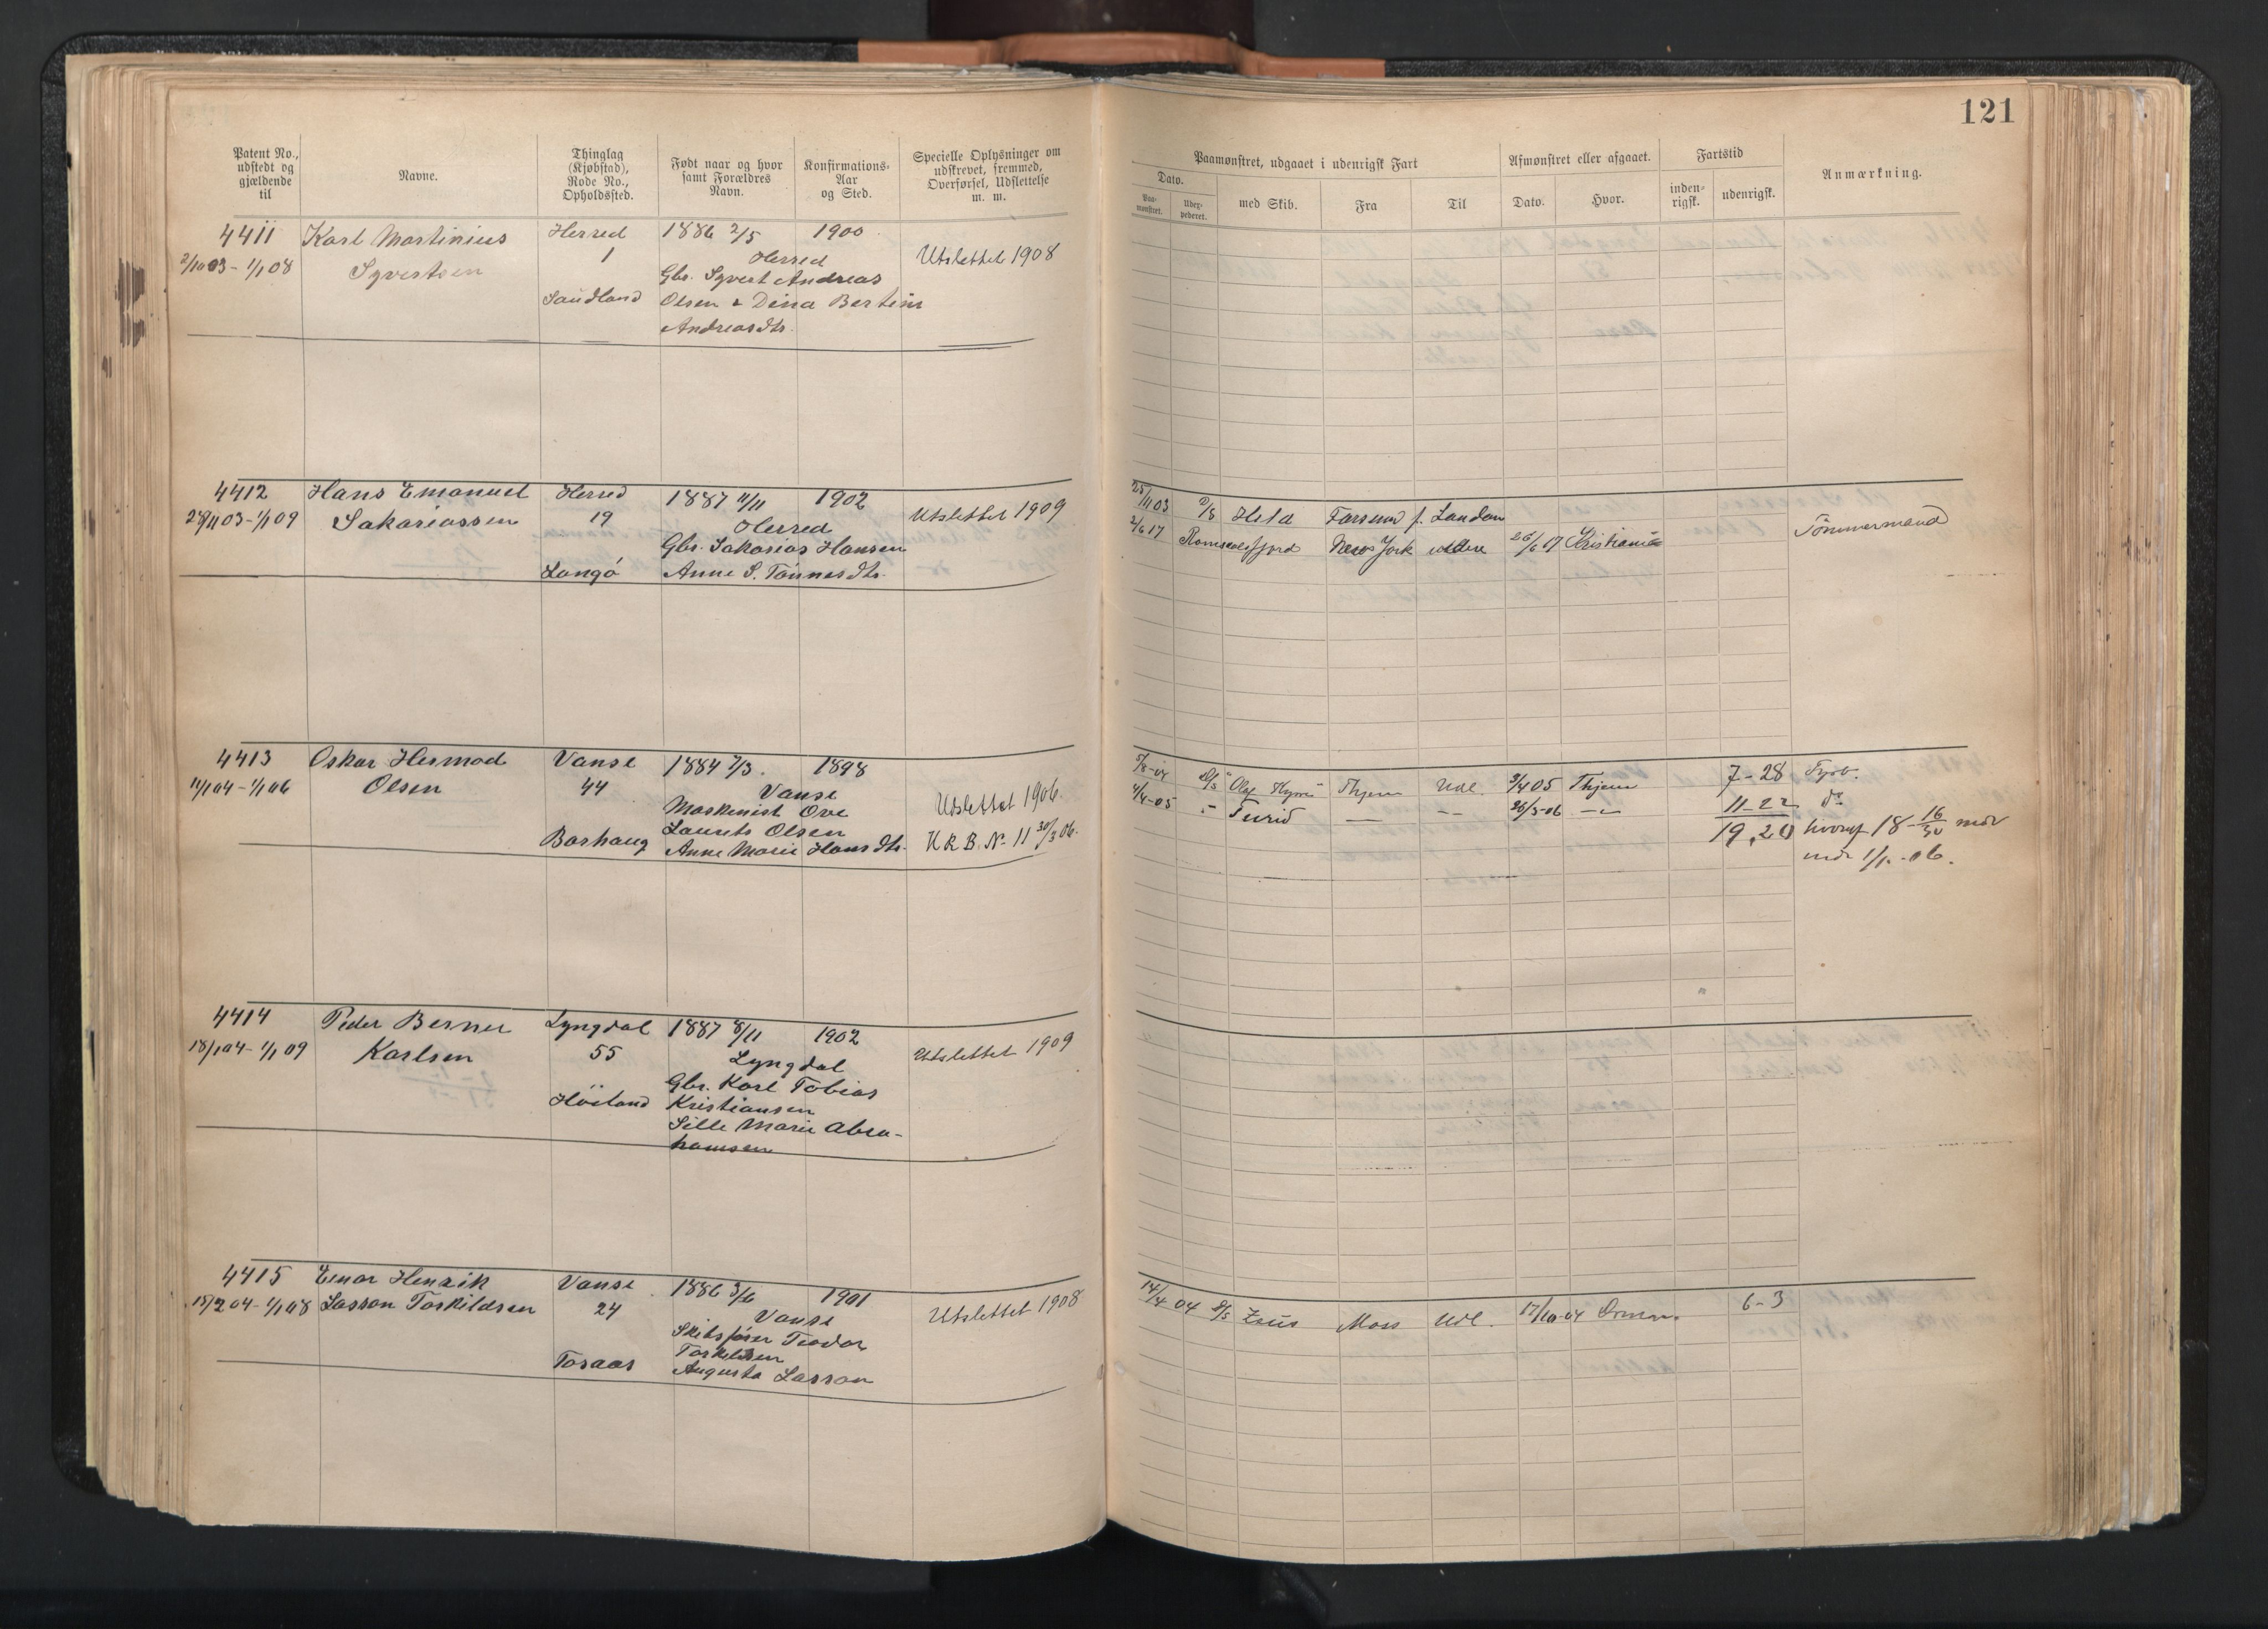 121
Patent No., udstedt og gjældende til
Navne.
Thinglag (Kjøbstad), Rode No., Opholdssted.
Født naar og hvor samt Forældres Navn.
Konfirmations-Aar og Sted.
Specielle Oplysninger om udskrevet, fremmed, Overførsel, Udslettelse m. m.
Paamønstret, udgaaet i udenrigsk Fart
Afmønstret eller afgaaet.
Fartstid
Anmærkning.
Dato.
Paa-mønstret.
med Skib.
Fra
Til
Dato.
Hvor.
inden-rigsk.
udenrigsk.
4411 Karl Martinius Herred 1886 2/5 1900
2/10 03 - 1/1 08 Syvertsen 1 Herred Utslettet 1908
Gbr. Syvert Andreas
Saudland Olsen & Dina Bertine
Andreasdtr.
4412 Hans Emanuel Herred 1887 11/11 1902 Utslettet 1909
28/11 03 - 1/1 09 Sakariassen 19 Herred
Gbr. Sakarias Hansen
Langö Anne S. Tönnesdtr.
25/11 03 D/S Held Farsund f. London
2/6 17 Romsdalsfjord New York 26/6 17 Kristiania
Tömmermand
4413 Oskar Hermod Vanse 1884 7/3. 1898
11/1 04 - 1/1 06 Olsen 44 Vanse Utslettet 1906.
Maskinist Ove
Laurits Olsen
Borhaug Anne Marie Hansdtr. K R B. No 11 30/3 06.
5/8-04 D/S "Olaf Kyrre" Thjem Udl. 3/4 05 Thjem 7-28 Fyrb.
4/4-05 - Turid — — 26/3-06 — 11-22 do
19,20 hvoraf 18-16/30 mdr
1/1-06.
4414 Peder Berner Lyngdal 1887 8/11 1902
18/1 04 - 1/1 09 Karlsen 55 Lyngdal Utslettet 1909
Gbr. Karl Tobias
Höiland Kristiansen
Sille Marie Abra-
hamsen
4415 Einar Henrik Vanse 1886 3/6 1901
15/2 04 - 1/1 08 Lasson Torkildsen 24 Vanse Utslettet 1908
Skibsfører Teodor
Toraas Torkildsen
Augusta Lasson
14/4 04 D/S Zeus Moss Udl. 17/10-04 6-3